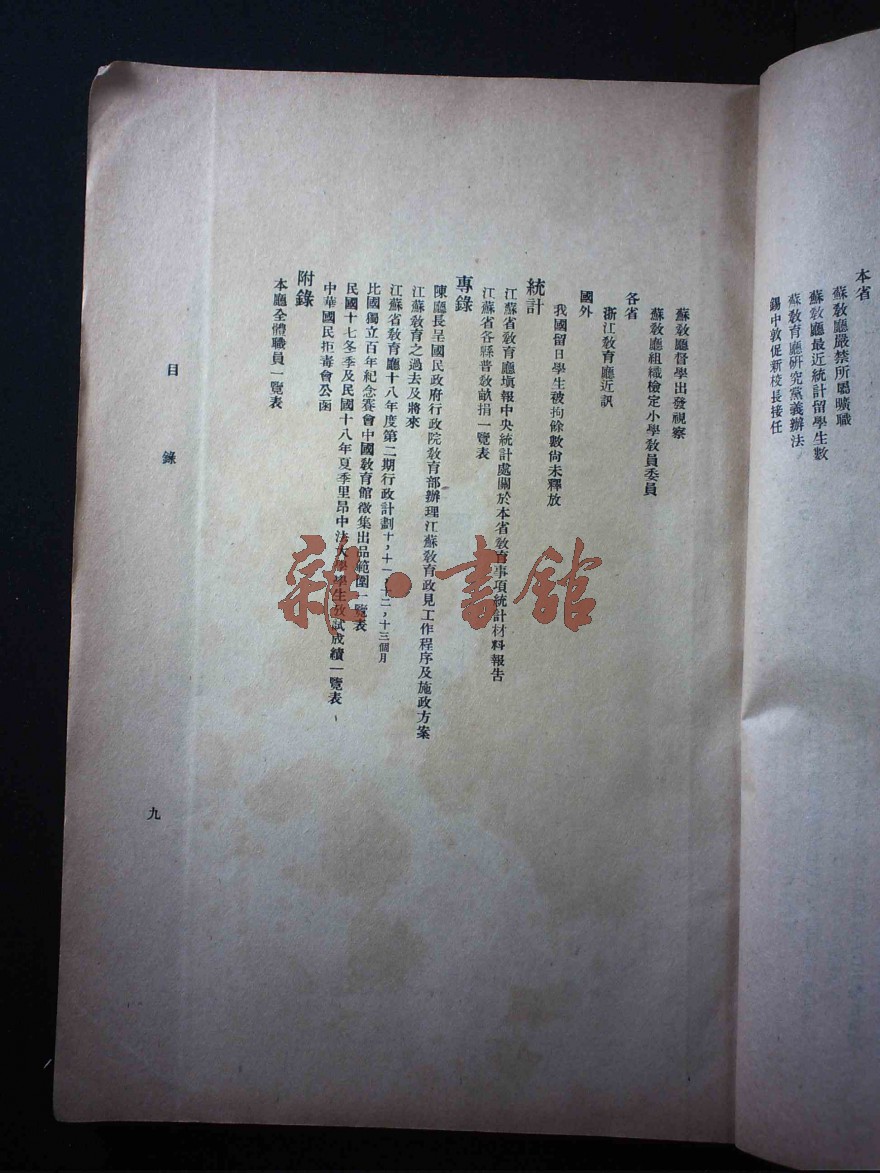 本省
蘇敎廳嚴禁所屬曠職
蘇敎廳最近統計留學生數
蘇敎育廳研究黨義辦法
錫中敦促新校長接任
蘇敎廳督學出發視察
蘇敎廳組織檢定小學敎員委員
各省
浙江敎育廳近訊
國外
我國留日學生被拘餘數尙未釋放
統計
江蘇省敎育廳塡報中央統計處關於本省敎育事項統計材料報告
江蘇省各縣普敎畝捐一覽表
專錄
陳廳長呈國民政府行政院敎育部辦理江蘇敎育政見工作程序及施政方案
江蘇敎育之過去及將來
江蘇省敎育廳十八年度第二期行政計劃十，十一，十二，十三個月
比國獨立百年紀念賽會中國敎育館徵集出品範圍一覽表
民國十七冬季及民國十八年夏季里昂中法大學學生攷試成績一覽表
中華國民拒毒會公函
附錄
本廳全體職員一覽表
目錄
九
雜·書館